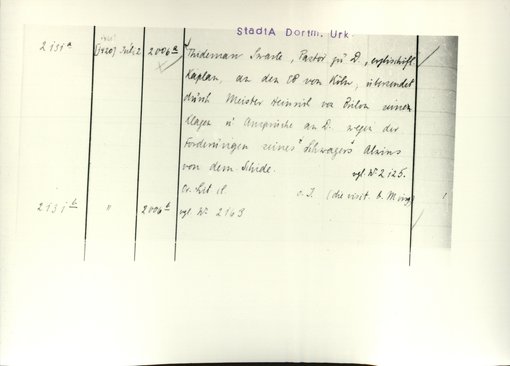 StadtA Dortm. Urk.
2131a [1420] Juli 2 2006a Thideman Swarte, Pastor zu D., erzbischöfl.
Kaplan, an den EB von Köln, übersendet
durch Meister Heinrich von Brilon seine
Klagen u. Ansprüche an D. wegen der
Forderungen seines Schwagers
von dem Schide. vgl. Nr. 2125.
Or. lat. o. J. (die visit. b. Marie)
2131b " 2006b vgl. Nr. 2163